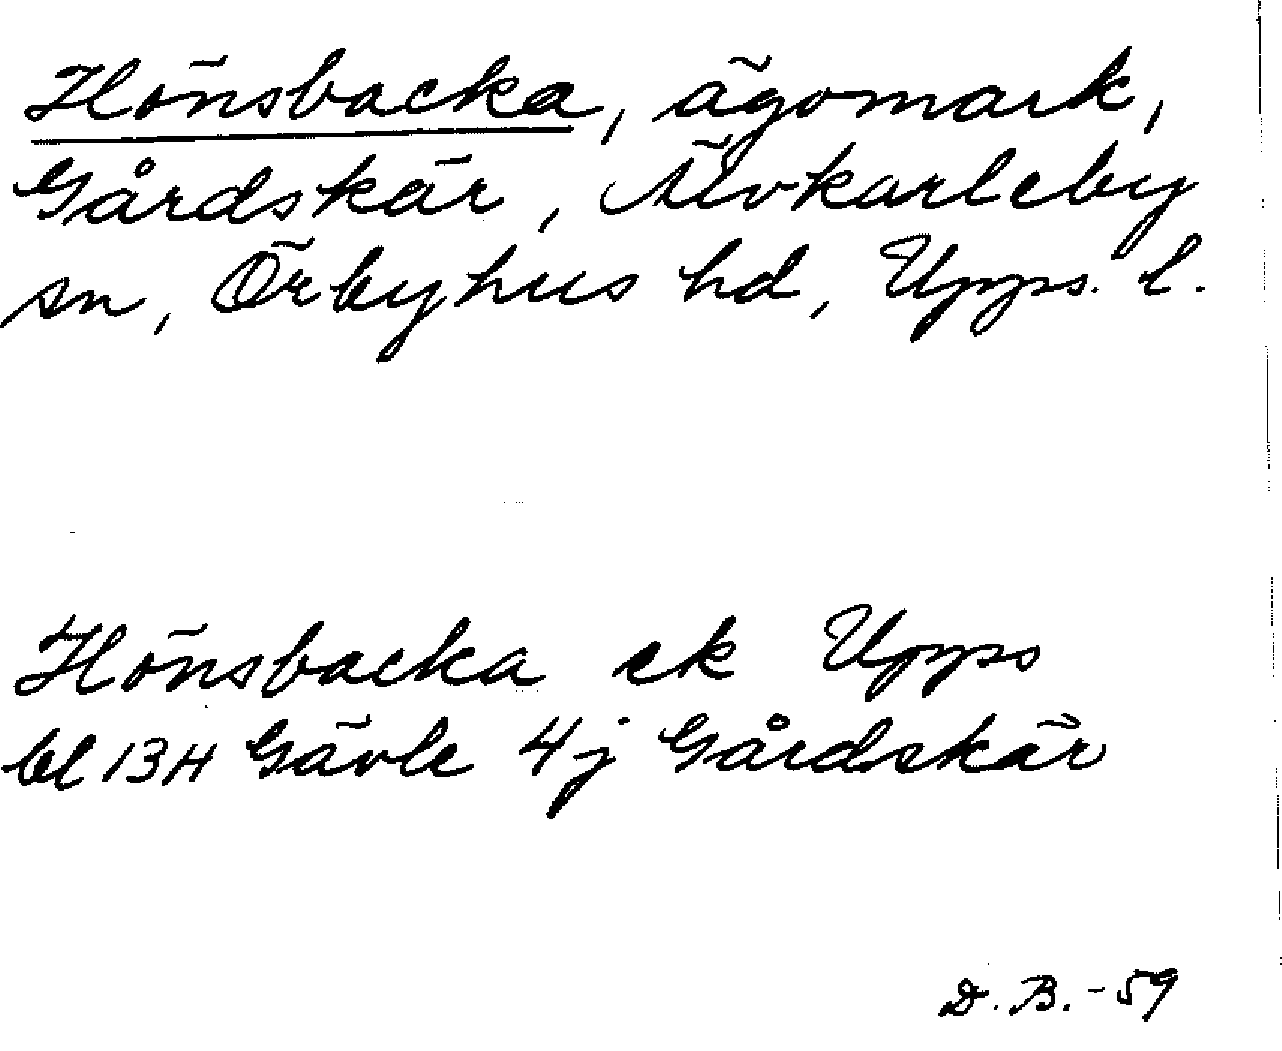 Hönsbacka, ägomark,
Gårdskär, Älvkarleby
sn, Örbyhus hd, Upps. l.
Hönsbacka ek Upps
bl 13H Gävle 4j Gårdskär
D. B. - 59